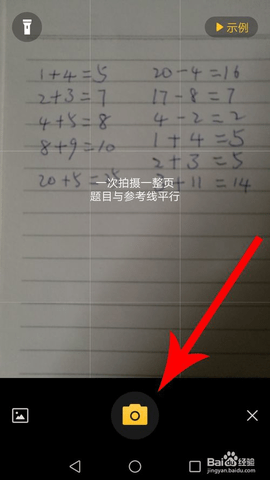 示例
1+4=5 20-4=16
2+3=7 17-8=7
4+5=8 4-2=2
8+9=10 1+4=5
2+3=5
20+5=25 3+11=14
一次拍摄一整页
题目与参考线平行
Baidu经验
jingyan.baidu.com